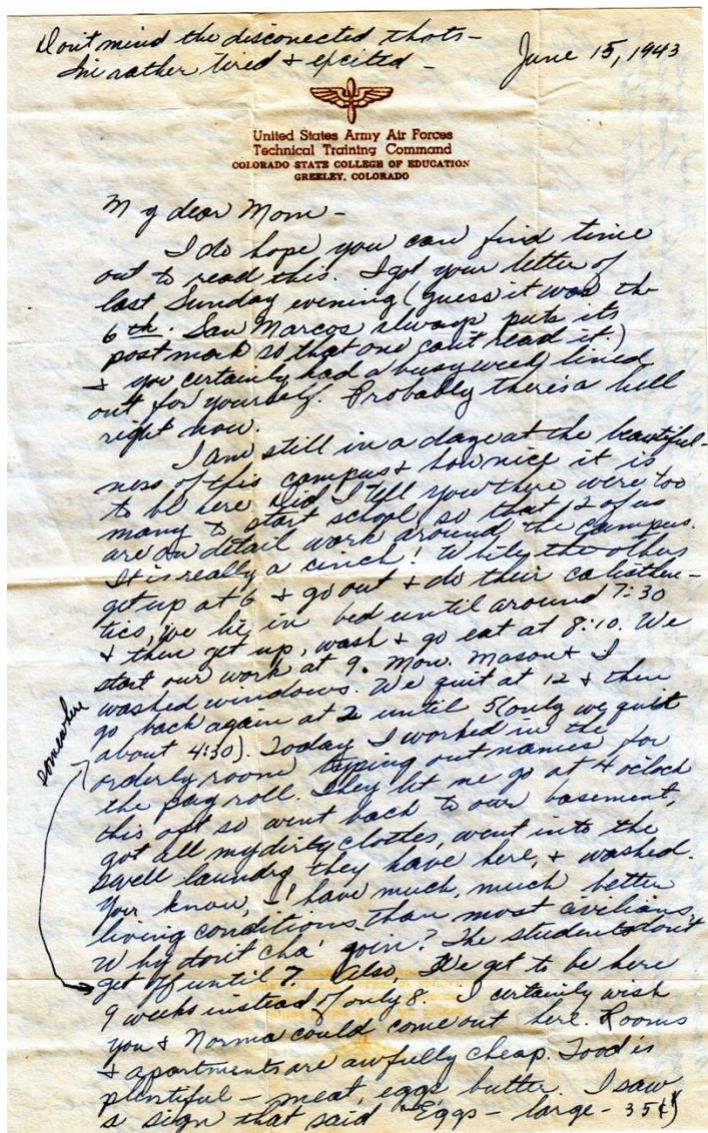 Don't mind the disconected thots -
I'm rather tired & excited -
June 15, 1943
United States Army Air Forces
Technical Training Command
COLORADO STATE COLLEGE OF EDUCATION
GREELEY, COLORADO
My dear Mom -
I do hope you can find time
out to read this. I got your letter of
last Sunday evening (guess it was the
6th. San Marcos always puts its
post mark so that one can't read it.)
& you certainly had a busy week lined
out for yourself. Probably there's a lull
right now.
I am still in a daze at the beautiful-
ness of this campus & how nice it is
to be here. Did I tell you there were too
many to start school, so that 12 of us
are on detail work around the campus.
It is really a cinch! While the others
get up at 6 & go out & do their calisthen-
tics, we lie in bed until around 7:30
& then get up, wash & go eat at 8:10. We
start our work at 9. Mon. Mason & I
washed windows. We quit at 12 & then
go back again at 2 until 5 (only we quit
about 4:30). Today I worked in the
somewhere
orderly room typing out names for
the pay roll. They let me go at 4 o'clock
this aft so went back to our basement,
got all my dirty clothes, went into the
swell laundry they have here, & washed.
You know, I have much, much better
living conditions than most civilians.
Why don't cha' goin? The students don't
get off until 7. Also, We get to be here
9 weeks instead of only 8. I certainly wish
you & Norma could come out here. Rooms
& apartments are awfully cheap. Food is
plentiful - meat, eggs, butter. I saw
a sign that said "Eggs - large - 35¢"